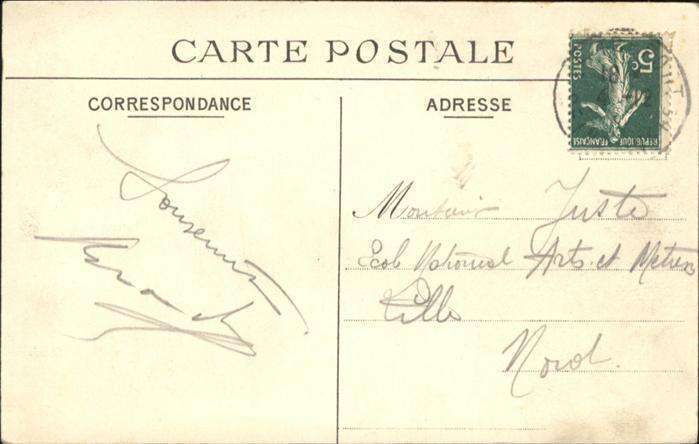 CARTE POSTALE
CORRESPONDANCE
ADRESSE
5c
POSTES
REPUBLIQUE FRANÇAISE
Souvenir
Juste
Ecole National Arts et Metiers
Lille
Nord